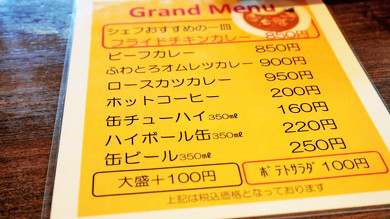 Grand Menu
シェフおすすめの一皿
フライドチキンカレー 850円
ビーフカレー 850円
ふわとろオムレツカレー 900円
ロースカツカレー 950円
ホットコーヒー 200円
缶チューハイ350㎖ 160円
ハイボール缶350㎖ 220円
缶ビール350㎖ 250円
大盛+100円
ポテトサラダ100円
上記は税込価格となっております